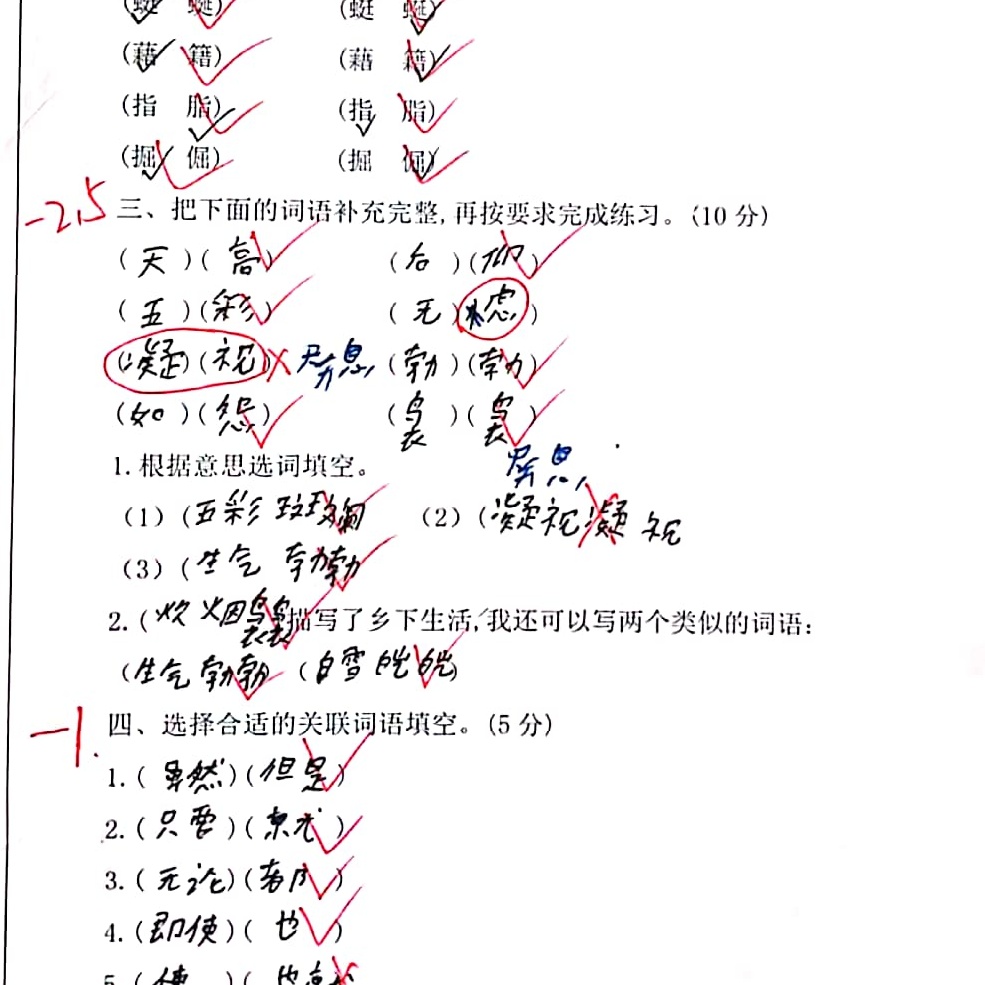 (蜓 蜒) (蜓 蜒)
(藉 籍) (藉 籍)
(指 脂) (指 脂)
(掘 倔) (掘 倔)
-2.5 三、把下面的词语补充完整,再按要求完成练习。(10 分)
(天)(高) (后)(仰)
(五)(彩) (无)(虑)
(凝)(视) 屏息 (勃)(勃)
(如)(怨) (袅)(袅)
1.根据意思选词填空。
屏息
(1) (五彩斑斓 (2) (凝视凝视
(3) (生气勃勃
2. (炊烟袅袅 描写了乡下生活,我还可以写两个类似的词语:
(生气勃勃) (白雪皑皑)
-1. 四、选择合适的关联词语填空。(5 分)
1. (虽然)(但是)
2. (只要)(就)
3. (无论)(都)
4. (即使)(也)
5. (